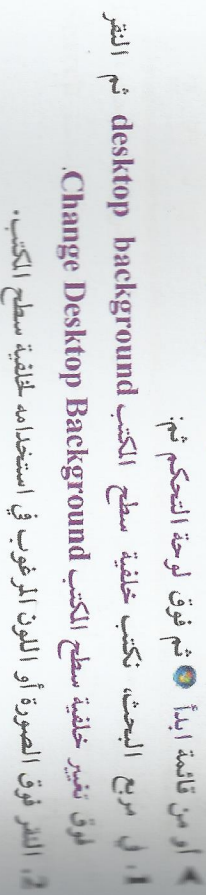 ◄ أو من قائمة ابدأ ثم فوق لوحة التحكم ثم:
1. في مربع البحث، نكتب خلفية سطح الكتب desktop background ثم النقر
فوق تغيير خلفية سطح الكتب Change Desktop Background.
2. النقر فوق الصورة أو اللون المرغوب في استخدامه لخلفية سطح الكتب.